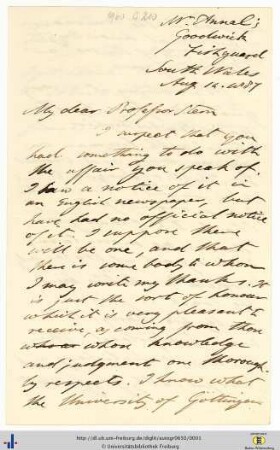 Mr. Annal's
Goodwick
Fishguard
South Wales
Aug 12. 1887
My dear Professor Stern
I suspect that you
had something to do with
the affair you speak of.
I saw a notice of it in
an English newspaper, but
have had no official notice
of it. I suppose there
will be one, and that
there is some body to whom
I may write my thanks. It
is just the sort of honour
which it is very pleasant to
receive, as coming from those
whose knowledge
and judgment one thorough-
ly respects. I know what
the University of Göttingen
http://dl.ub.uni-freiburg.de/diglit/
© Universitätsbibliothek Freiburg